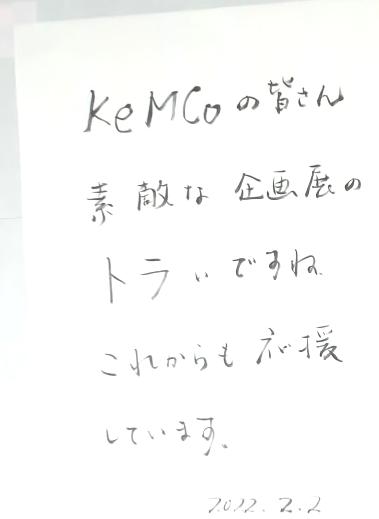 KeMCoの皆さん
素敵な企画展の
トライですね
これからも応援
しています。
2022.2.2